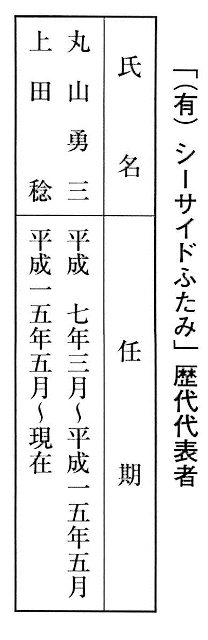 「(有)シーサイドふたみ」歴代代表者
氏名 任期
丸山勇三 平成 七年三月～平成一五年五月
上田 稔 平成一五年五月～現在